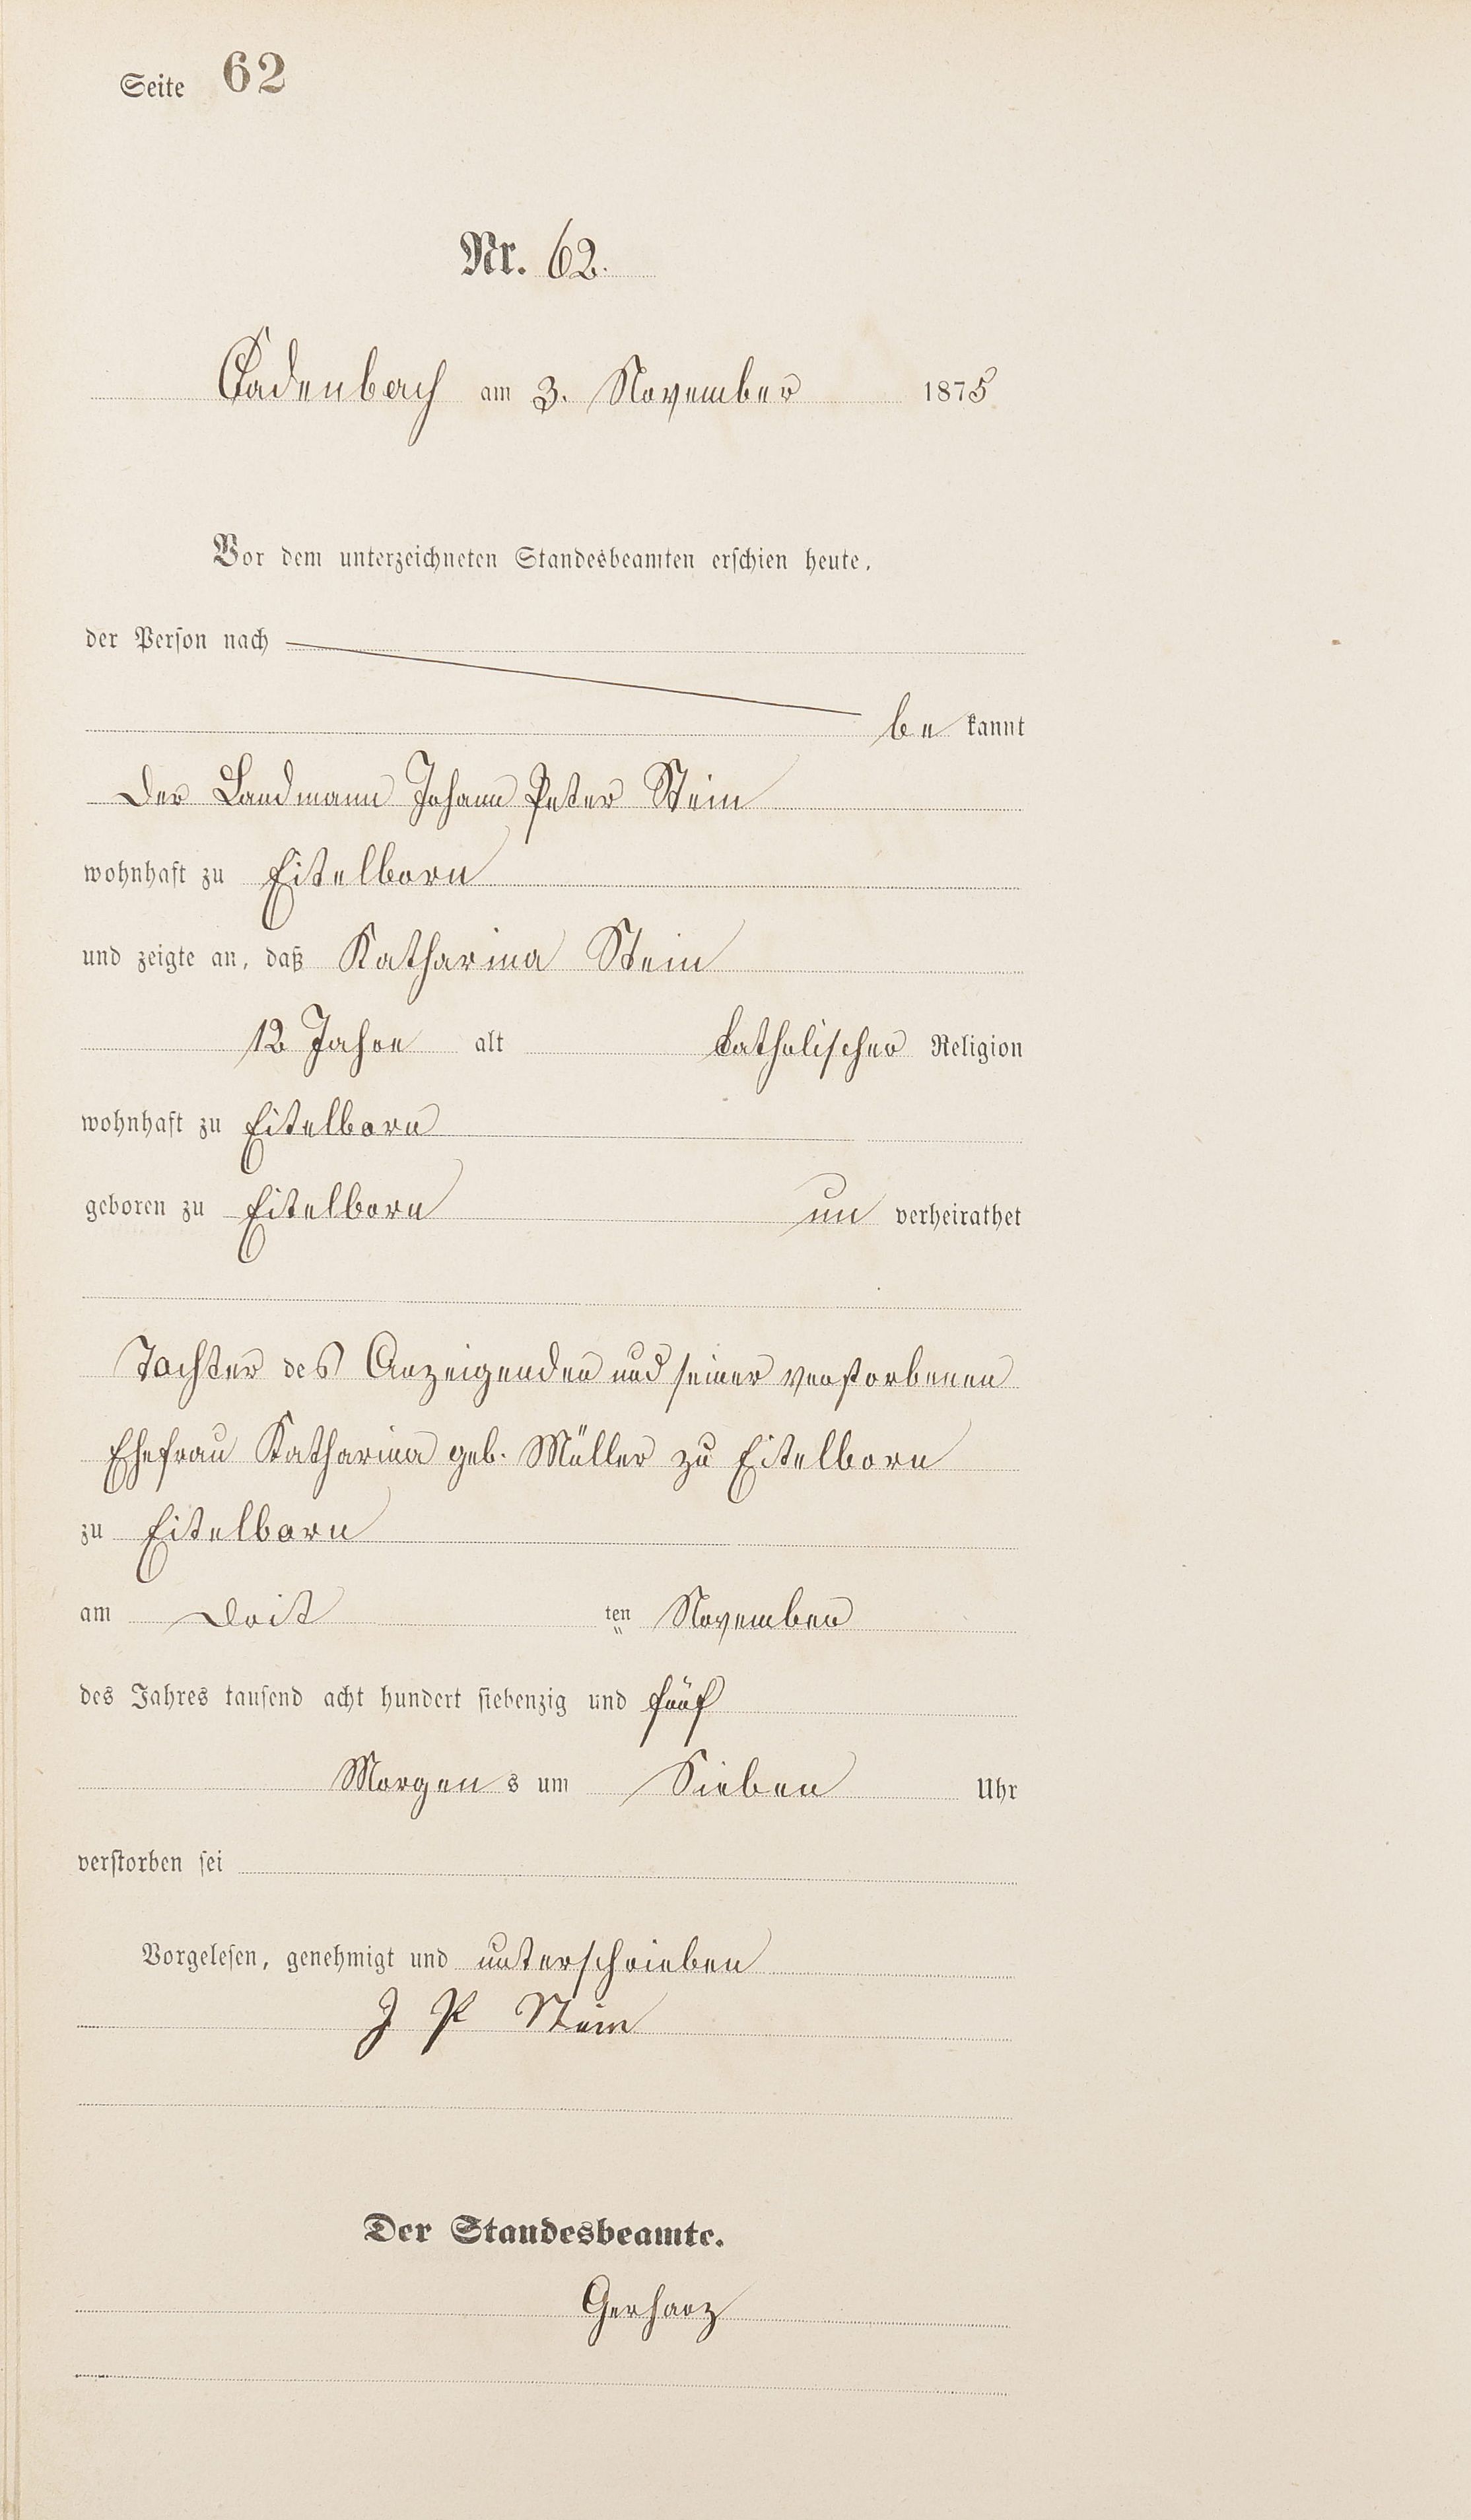 Seite 62
Nr. 62.
Cadenbach am 3. November 1875
Vor dem unterzeichneten Standesbeamten erschien heute,
der Person nach
be kannt
Der Landmann Johann Peter Stein
wohnhaft zu Eitelborn
und zeigte an, daß Katharina Stein
12 Jahre alt katholischer Religion
wohnhaft zu Eitelborn
geboren zu Eitelborn un verheirathet
Tochter des Anzeigenden und seiner verstorbenen
Ehefrau Katharina geb. Müller zu Eitelborn
zu Eitelborn
am Drit ten November
des Jahres tausend acht hundert siebenzig und fünf
Morgen s um Sieben Uhr
verstorben sei
Vorgelesen, genehmigt und unterschrieben
J P Stein
Der Standesbeamte.
Gerharz